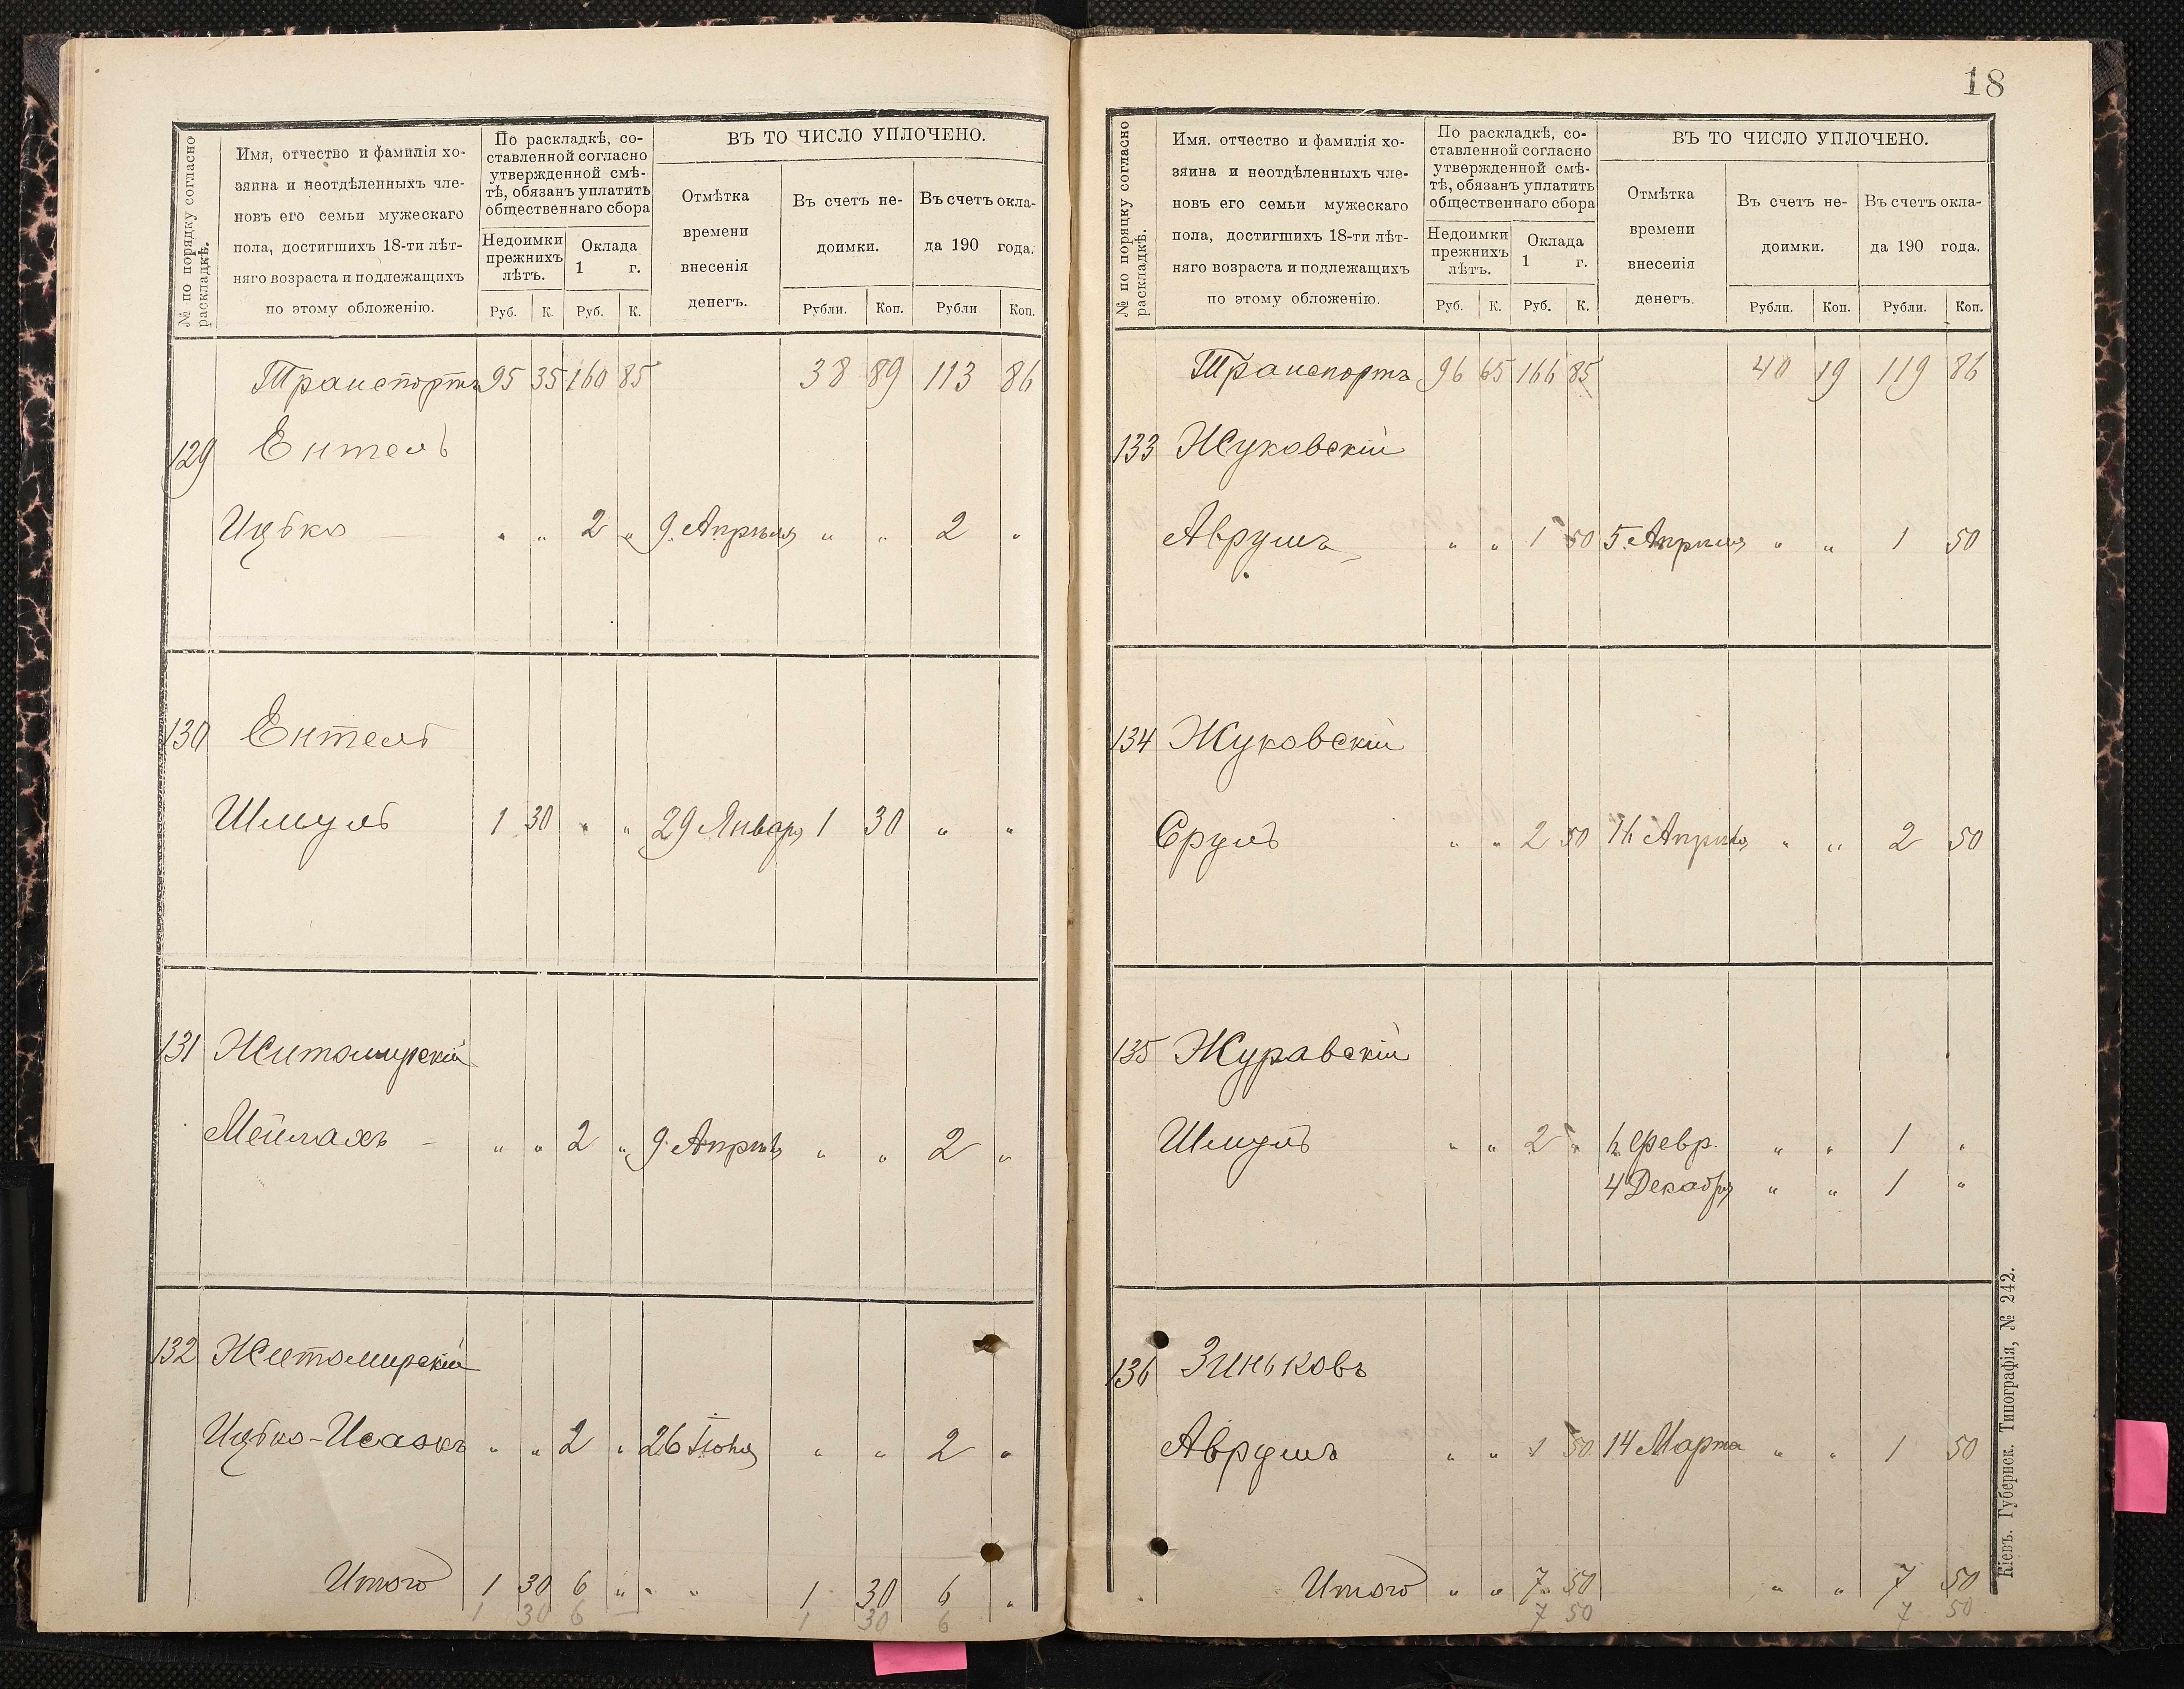 № по порядку согласно раскладкѣ.
Имя, отчество и фамилія хо-
зяина и неотдѣленныхъ чле-
новъ его семьи мужескаго
пола, достигшихъ 18-ти лѣт-
няго возраста и подлежащихъ
по этому обложенію.
По раскладкѣ, со-
ставленной согласно
утвержденной смѣ-
тѣ, обязанъ уплатить
общественнаго сбора
Недоимки
прежнихъ
лѣтъ.
Оклада
1 г.
Руб. К. Руб. К.
ВЪ ТО ЧИСЛО УПЛОЧЕНО.
Отмѣтка
времени
внесенія
денегъ.
Въ счетъ не-
доимки.
Въ счетъ окла-
да 190 года.
Рубли. Коп. Рубли Коп.
Транспортъ 95 35 160 85 38 89 113 86
129 Ентель
Ицько " " 2 " 9 Апрѣля " " 2 "
130 Ентель
Шмуль 1 30 " " 29 Января 1 30 " "
131 Житомирскій
Мейлахъ " " 2 " 9 Апрѣля " " 2 "
132 Житомирскій
Ицько-Исаакъ " " 2 " 26 Іюня " " 2 "
Итого 1 30 6 " " " 1 30 6 "
1 30 6 — 1 30 6
18
№ по порядку согласно раскладкѣ.
Имя. отчество и фамилія хо-
зяина и неотдѣленныхъ чле-
новъ его семьи мужескаго
пола, достигшихъ 18-ти лѣт-
няго возраста и подлежащихъ
по этому обложенію.
По раскладкѣ, со-
ставленной согласно
утвержденной смѣ-
тѣ, обязанъ уплатить
общественнаго сбора
Недоимки
прежнихъ
лѣтъ.
Оклада
1 г.
Руб. К. Руб. К.
ВЪ ТО ЧИСЛО УПЛОЧЕНО.
Отмѣтка
времени
внесенія
денегъ.
Въ счетъ не-
доимки.
Въ счетъ окла-
да 190 года.
Рубли. Коп. Рубли. Коп.
Транспортъ 96 65 166 85 40 19 119 86
133 Жуковскій
Аврумъ " " 1 50 5 Апрѣля " " 1 50
134 Жуковскій
Сруль " " 2 50 Апрѣля " " 2 50
135 Журавскій
Шмуль " " 2 " Февр. " " 1 "
4 Декабря " " 1 "
136 Зиньковъ
Аврумъ " " 1 50 14 Марта " " 1 50
Итого " " 7 50 " " 7 50
7 50 7 50
Кіевъ. Губернск. Типографія, № 242.